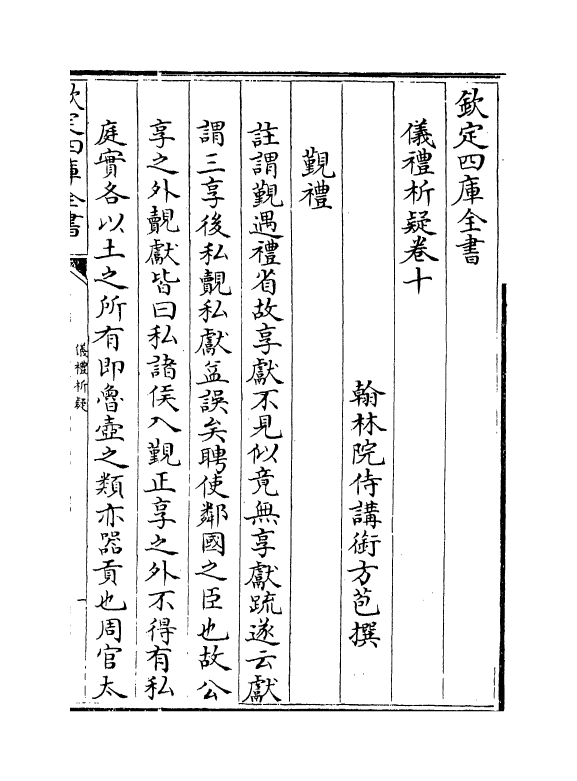 欽定四庫全書
儀禮析疑卷十
翰林院侍講銜方苞撰
覲禮
註謂覲遇禮省故享獻不見似竟無享獻䟽遂云獻
謂三享後私覿私獻益誤矣聘使鄰國之臣也故公
享之外覿獻皆曰私諸侯入覲正享之外不得有私
庭實各以土之所有即魯壺之類亦器貢也周官太
欽定四庫全書
儀禮析疑
一